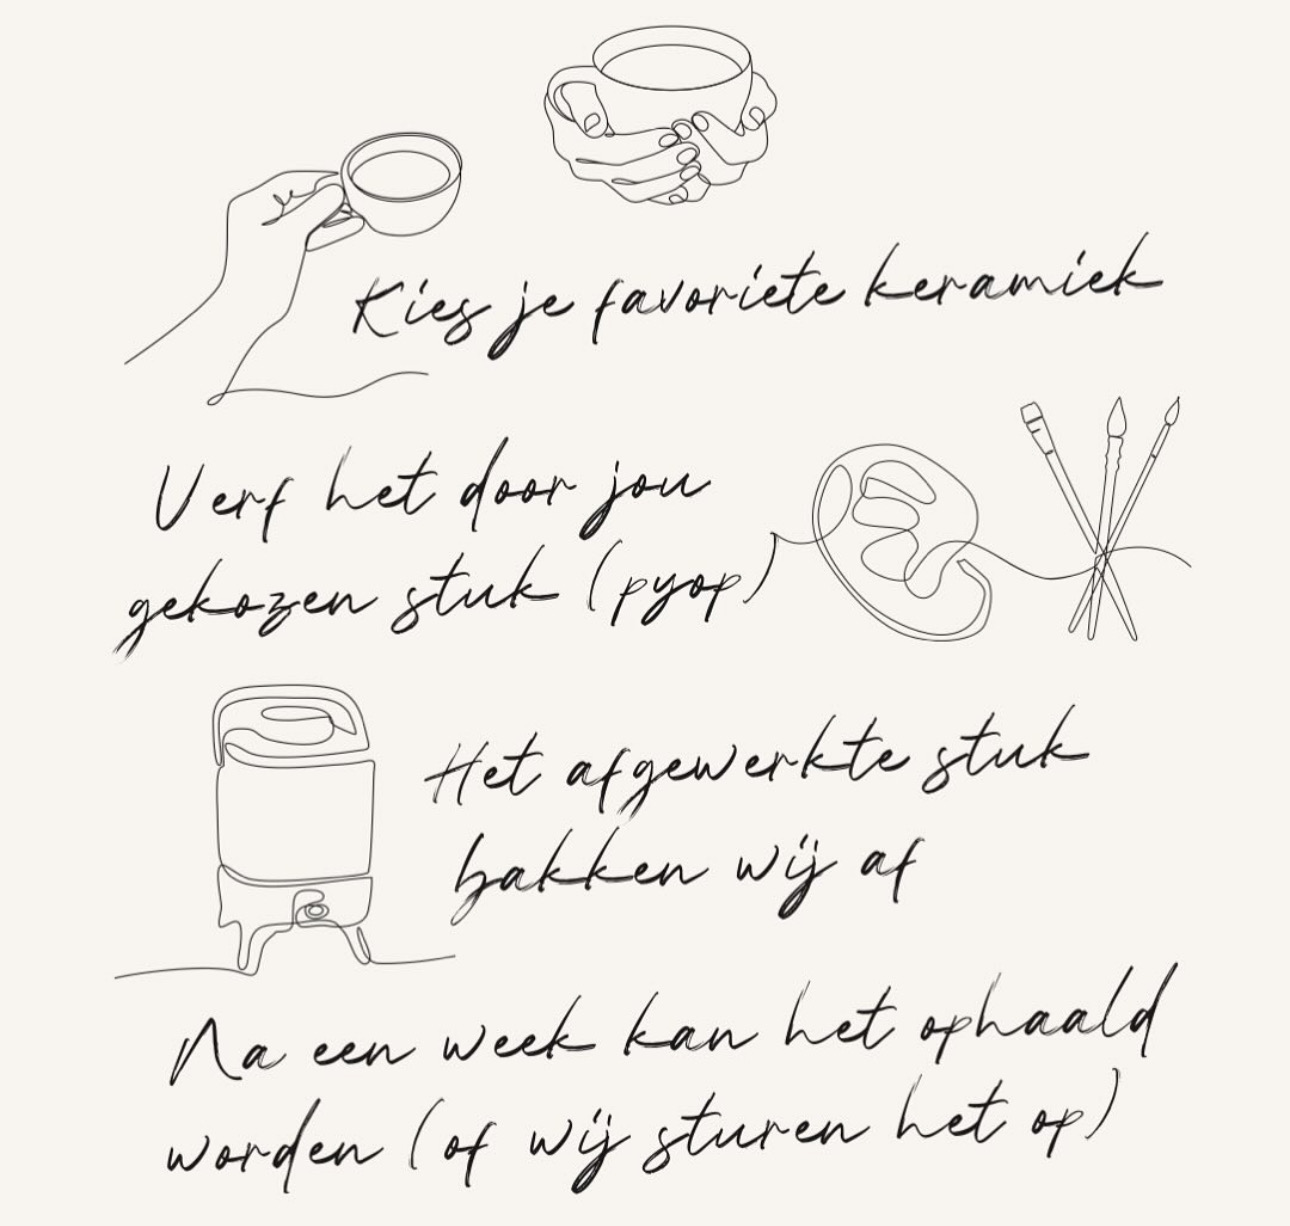 Kies je favoriete keramiek
Verf het door jou
gekozen stuk (pyop)
Het afgewerkte stuk
bakken wij af
Na een week kan het ophaald
worden (of wij sturen het op)